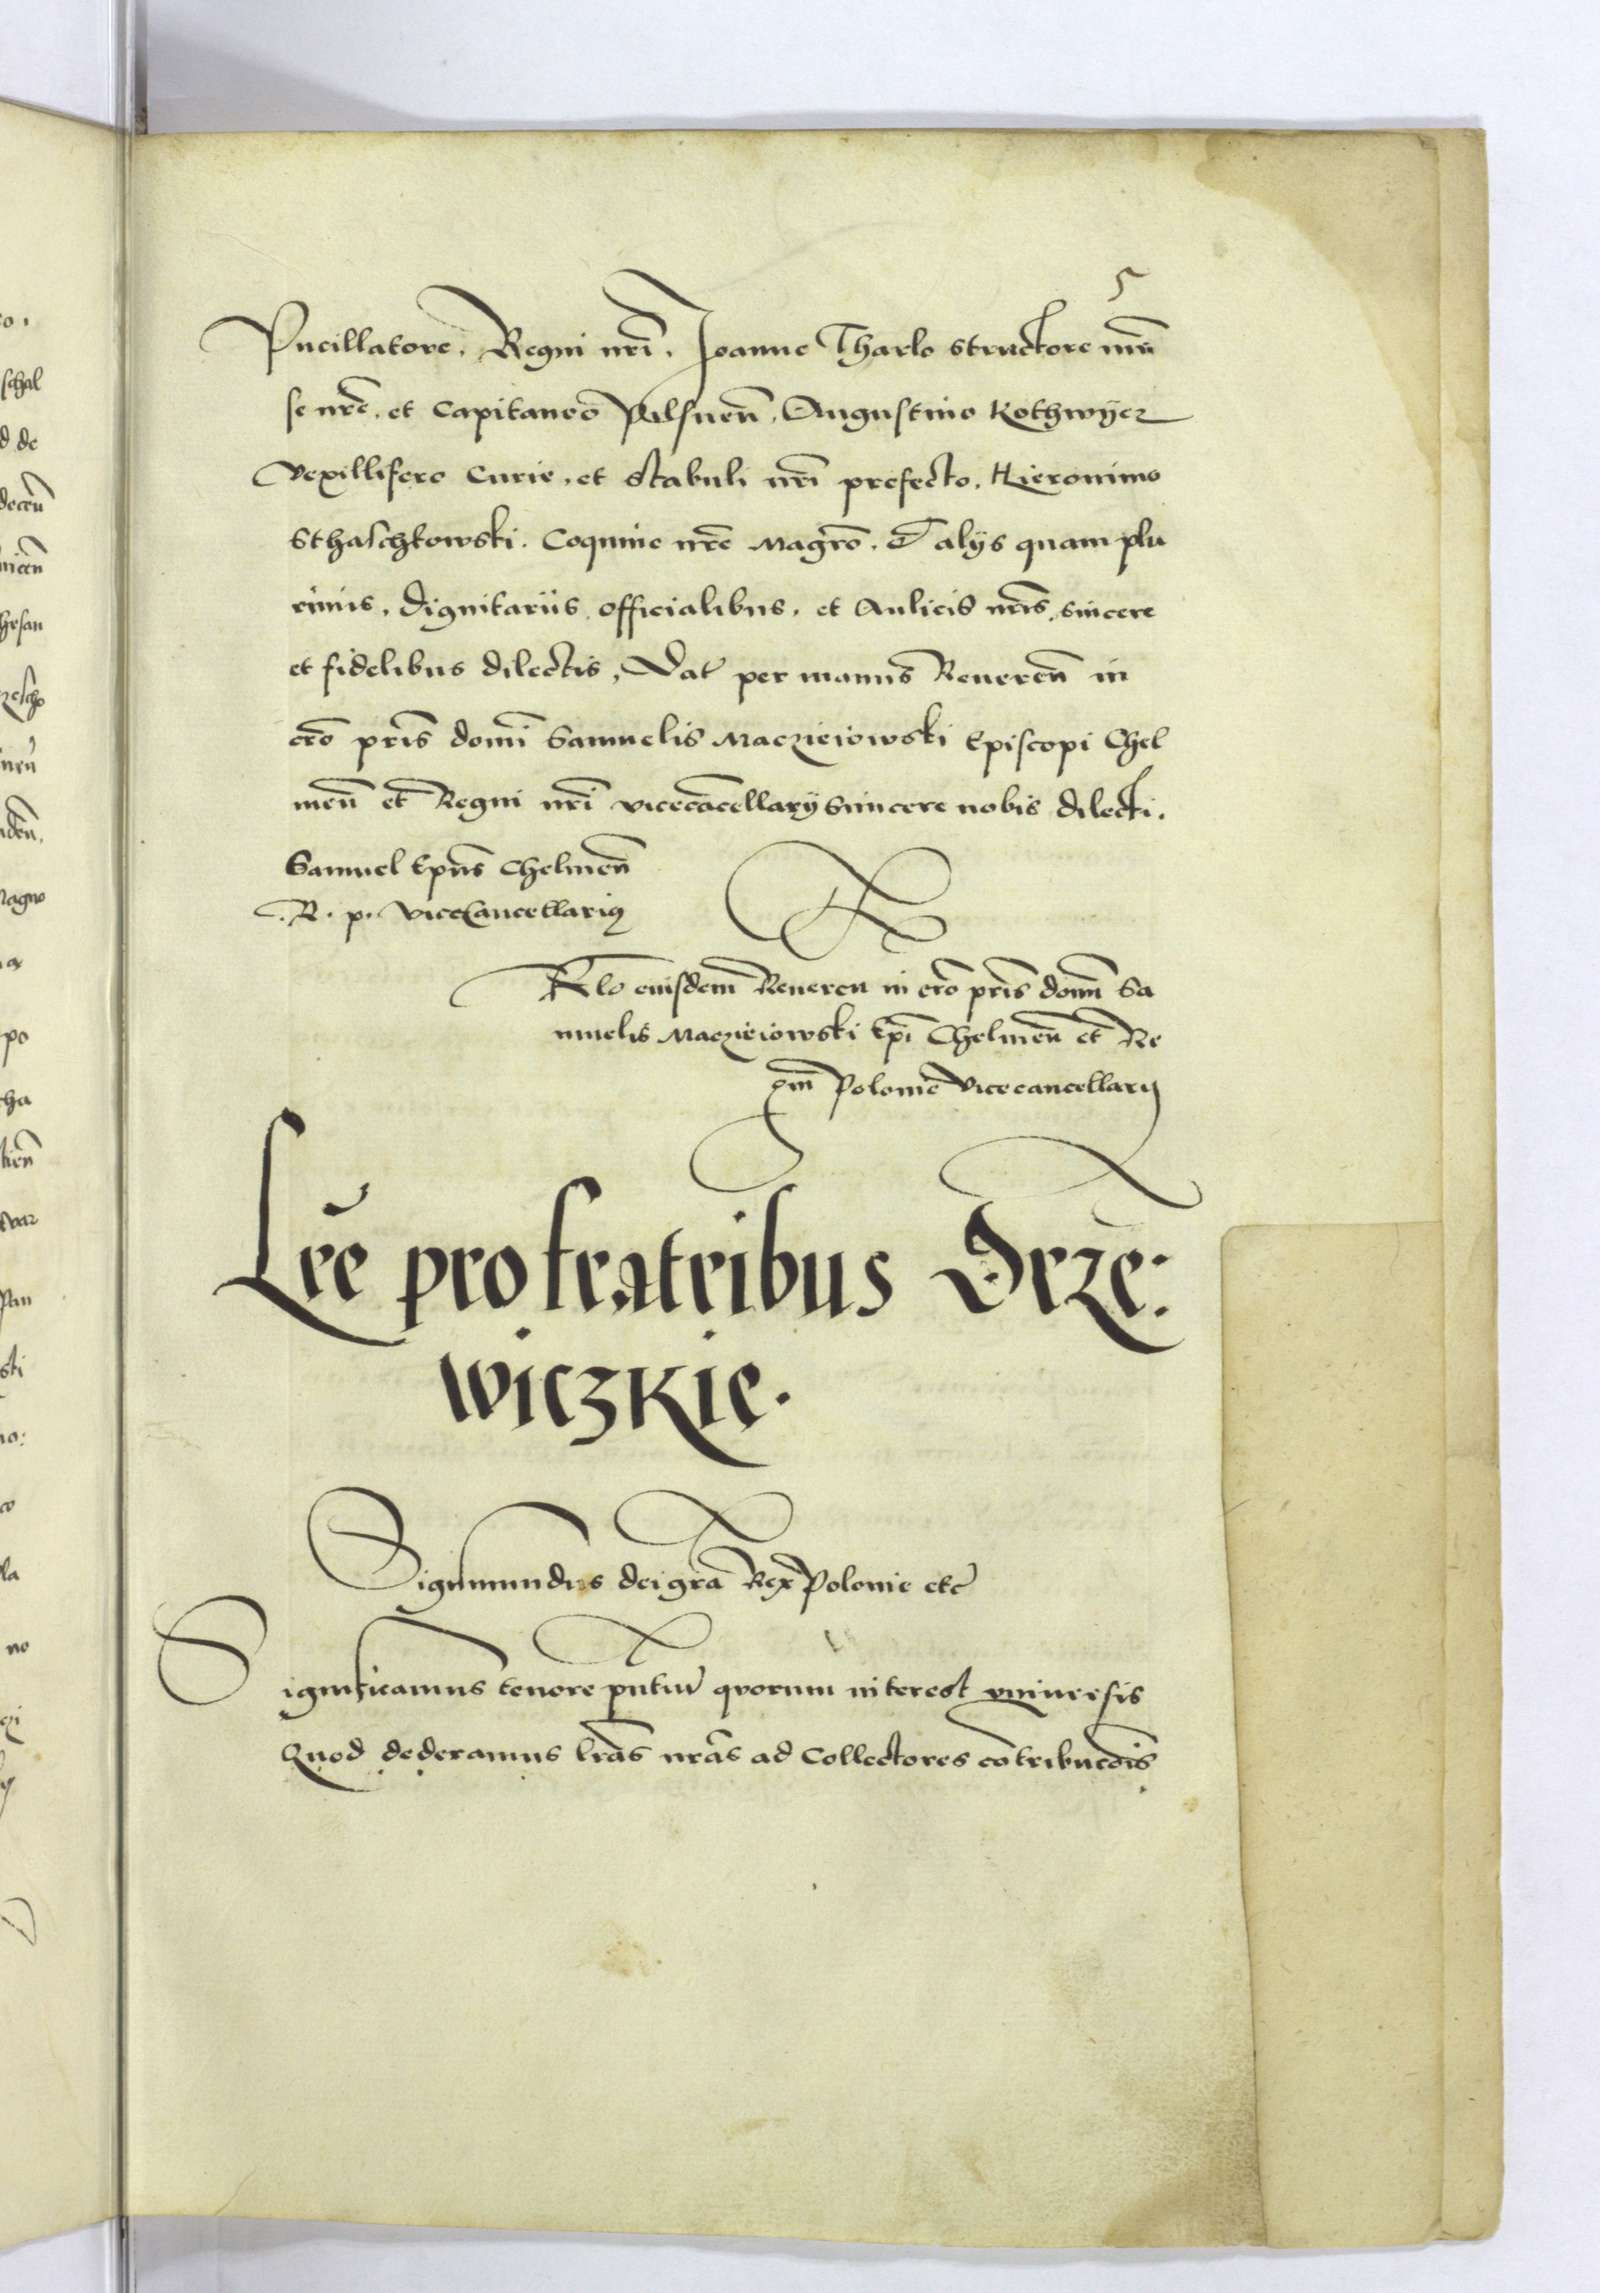 5
Pucillatore. Regni nr̃i. Joanne Tharlo structore men
se nr̃e. et Capitaneo Pilsneñ. Augustino Kothwijcz
Vexillifero Curie. et Stabuli nr̃i prefecto. Hieronimo
Sthaschkowski. Coquine nr̃e Magr̃o. et alijs quam plu
rimis. dignitariis officialibus. et Aulicis nr̃is. sincere
et fidelibus dilectis. Dat̃ per manus Reuereñ in
cr̃o pr̃is domĩ Samuelis Macziejowski Episcopi Chel
meñ et Regni nr̃i vicecãcellarij Sincere nobis dilecti.
Samuel Ep̃us Chelmeñ
.R. p. ViceCancellariꝰ
Rl̃o eiusdem Reuereñ in cr̃o pr̃is domĩ Sa
muelis Macziejowski Ep̃i Chelmeñ et Re
gni Polonie Vicecancellarij
Lr̃e pro fratribus Drze:
wiczkie.
Sigismundus dei gr̃a Rex Polonie etc̃
Significamus tenore pñtiũ quorum interest vniuersis
Quod dederamus lr̃as nr̃as ad Collectores cõtribucõis